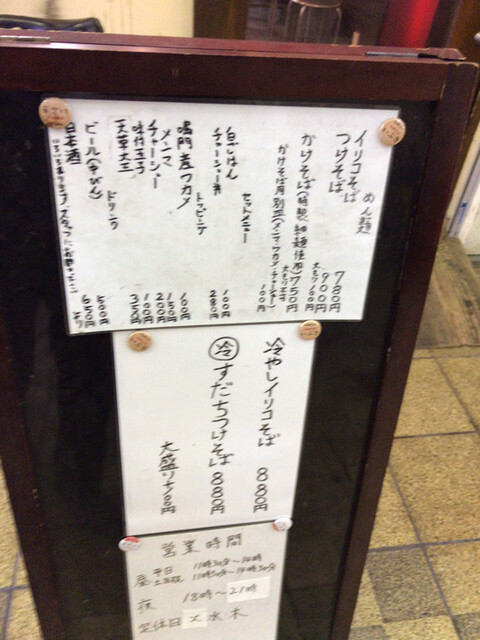 めん類
イリコそば 780円
つけそば 900円
大もり100円
かけそば(特製細麺使用) 750円
大もり
かけそば用別皿(メンマ、ワカメ、チャーシュー) 100円
セットメニュー
白ごはん 100円
チャーシュー丼 280円
トッピング
鳴門産ワカメ 100円
メンマ 150円
チャーシュー 200円
味付玉子 100円
天草大王 350円
ドリンク
ビール(中びん) 500円
日本酒 650円より
冷やしイリコそば 880円
冷 すだちつけそば 880円
大盛り+100円
営業時間
昼 平日 11時30分〜14時
11時30分〜14時30分
夜 18時〜21時
定休日 火 水 木